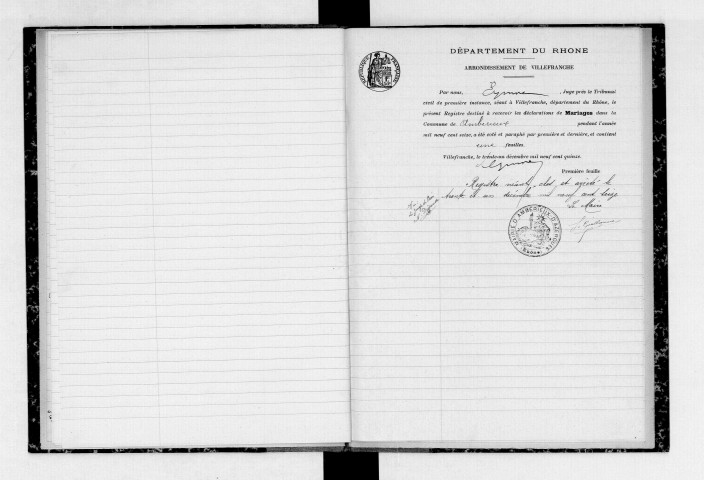 DÉPARTEMENT DU RHONE
ARRONDISSEMENT DE VILLEFRANCHE
RÉPUBLIQUE FRANÇAISE
Par nous, Juge près le Tribunal
civil de première instance, séant à Villefranche, département du Rhône, le
présent Registre destiné à recevoir les déclarations de Mariages dans la
Commune de Ambérieux pendant l'année
mil neuf cent seize, a été coté et paraphé par première et dernière, et contient
feuilles.
Villefranche, le trente-un décembre mil neuf cent quinze.
Première feuille
Registre néant, clos et arrêté le
trente et un décembre mil neuf cent seize
Le Maire
MAIRIE D'AMBÉRIEUX D'AZERGUES
(RHÔNE)